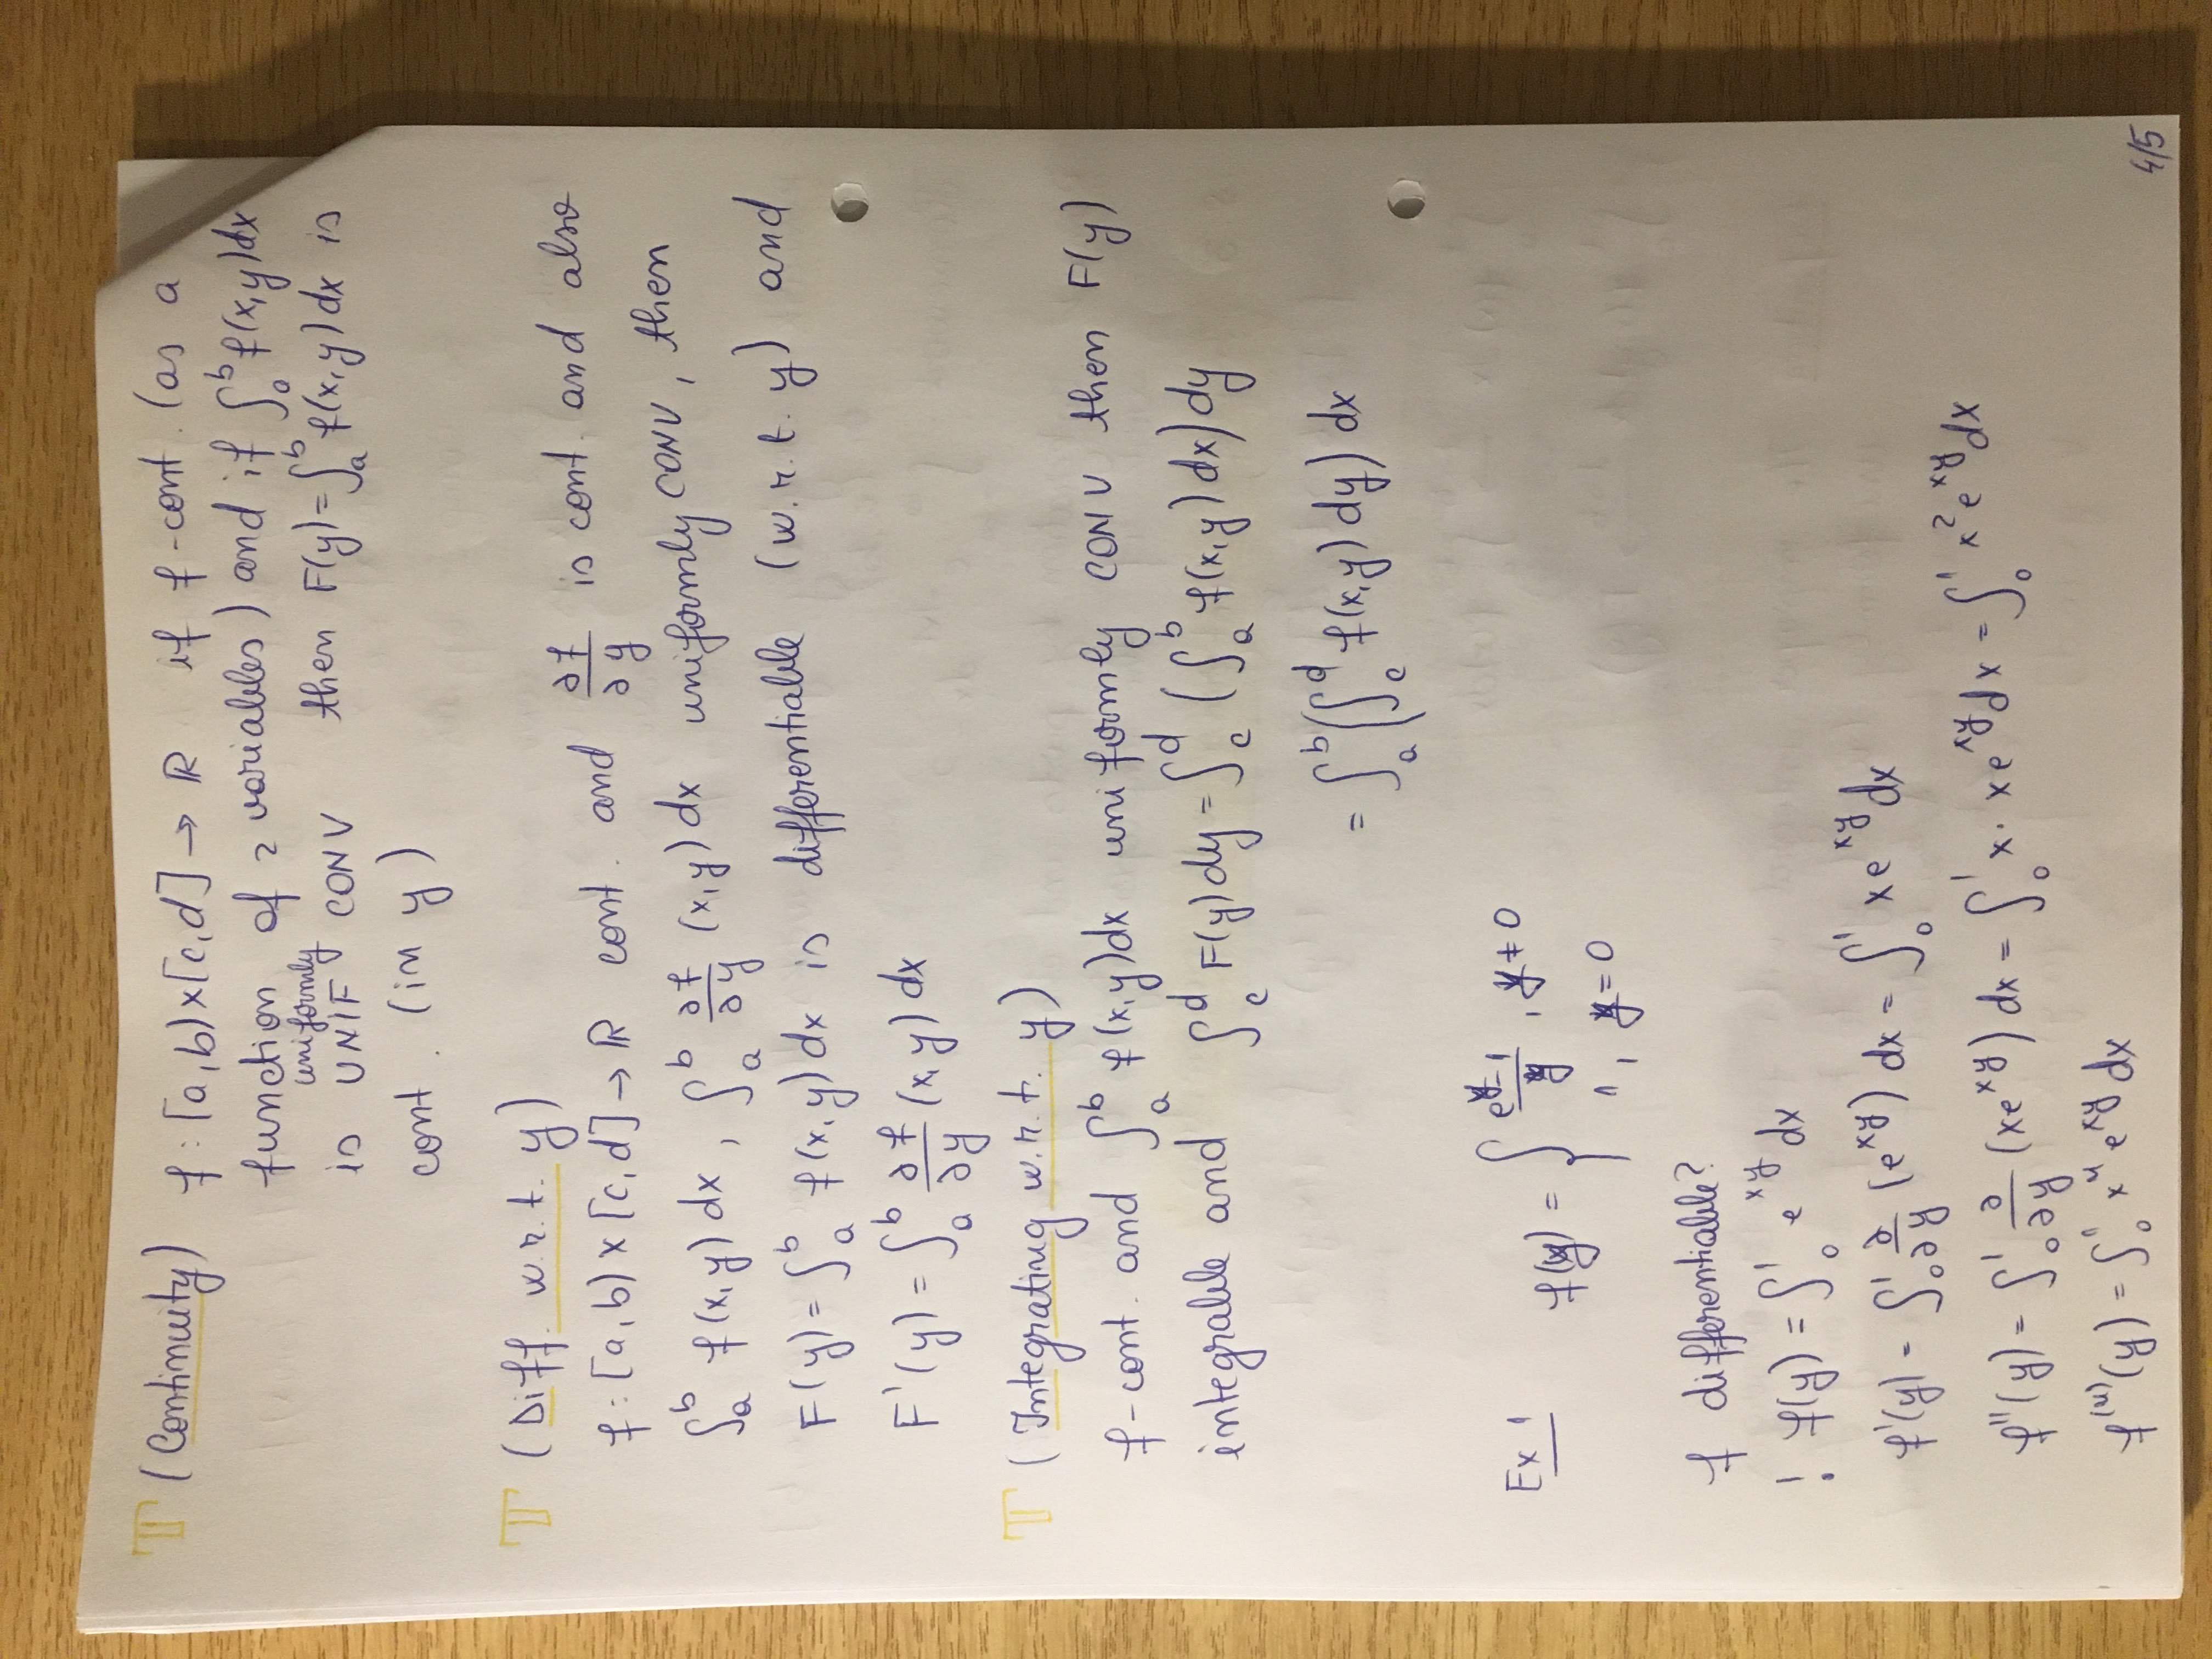 T (Continuity) f : [a,b)×[c,d] → ℝ if f-cont. (as a
function of 2 variables) and if ∫_a^b f(x,y)dx
uniformly
is UNIF CONV then F(y)=∫_a^b f(x,y)dx is
cont. (in y)
T (Diff. w.r.t. y)
f : [a,b) × [c,d] → ℝ cont. and ∂f/∂y is cont. and also
∫_a^b f(x,y) dx , ∫_a^b ∂f/∂y (x,y) dx uniformly CONV, then
F(y) = ∫_a^b f(x,y) dx is differentiable (w.r.t. y) and
F'(y) = ∫_a^b ∂f/∂y (x,y) dx
T (Integrating w.r.t. y)
f-cont. and ∫_a^b f(x,y)dx uniformly CONV then F(y)
integrable and ∫_c^d F(y)dy = ∫_c^d (∫_a^b f(x,y)dx)dy
= ∫_a^b (∫_c^d f(x,y) dy) dx
Ex 1 f(y) = { (e^y-1)/y , y ≠ 0
1 , y = 0
f differentiable?
! f(y) = ∫_0^1 e^{xy} dx
f'(y) = ∫_0^1 ∂/∂y (e^{xy}) dx = ∫_0^1 x e^{xy} dx
f''(y) = ∫_0^1 ∂/∂y (x e^{xy}) dx = ∫_0^1 x · x e^{xy} dx = ∫_0^1 x^2 e^{xy} dx
f^{(n)}(y) = ∫_0^1 x^n e^{xy} dx
4/5